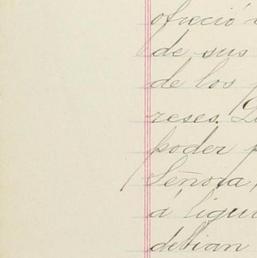 ofreció
de sus
de los
reses.
poder
Señora,
á
debian